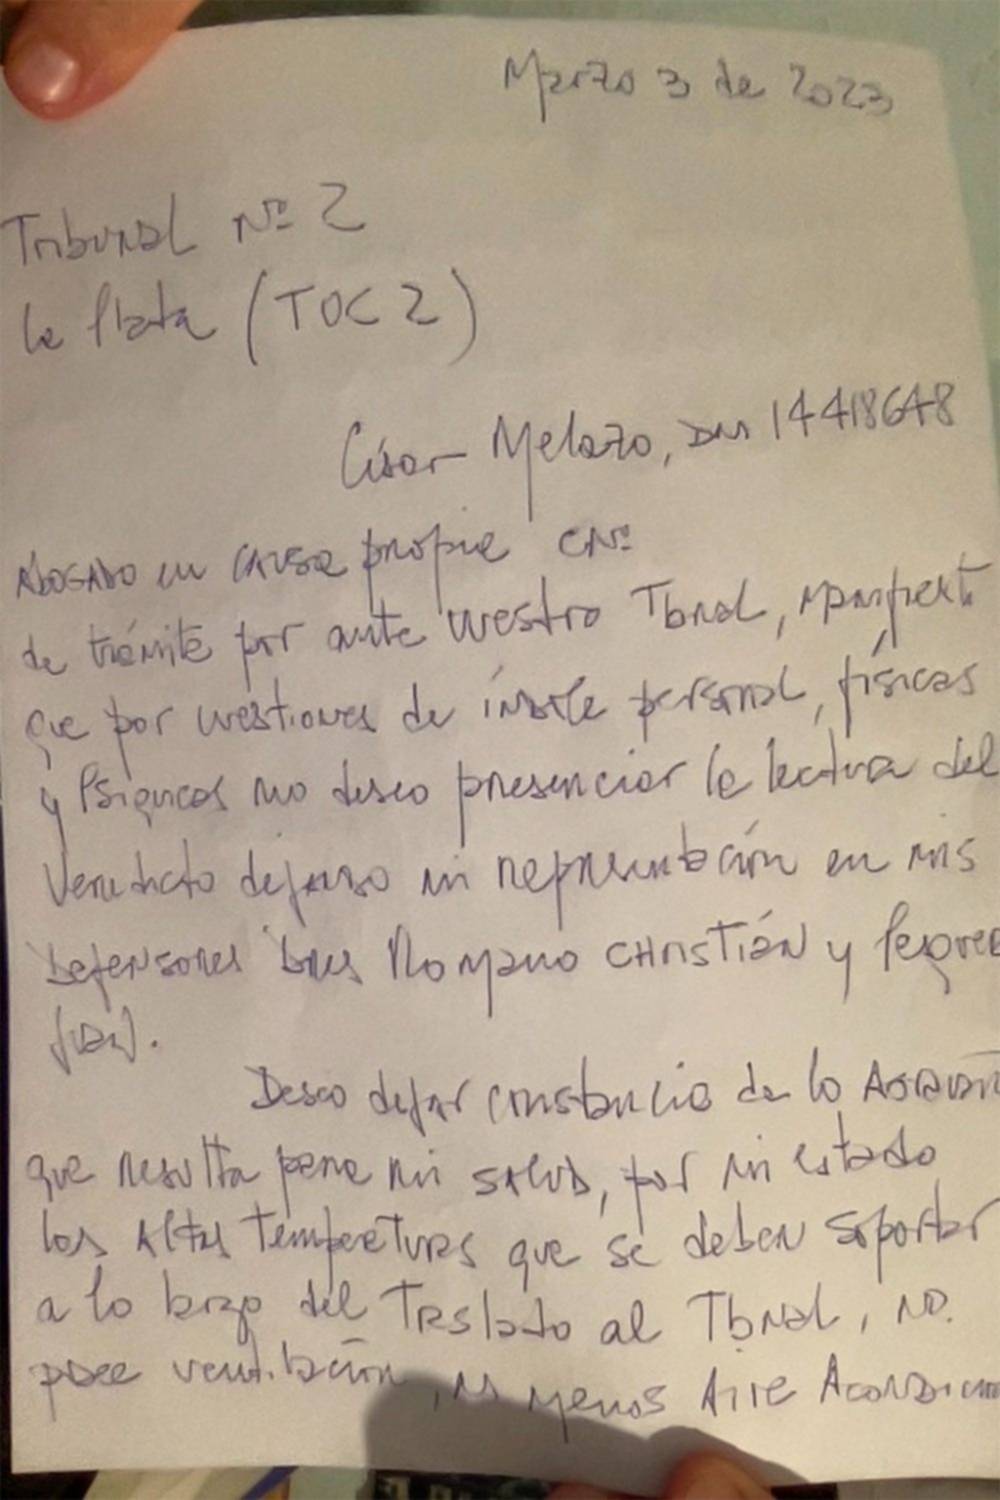 Marzo 3 de 2023
Tribunal Nº 2
La Plata (TOC 2)
César Melazo, DNI 14418648
Abogado en causa propia CNº
de trámite por ante vuestro Tbnal, manifiest
que por cuestiones de índole personal, físicas
y Psíquicas no deseo presenciar la lectura del
Veredicto dejando mi representación en mis
Defensores Dres Romano CHRISTIÁN y
Deseo dejar constancia de lo
que resulta para mi salud, por mi estado
las Altas temperaturas que se deben soportar
a lo largo del Traslado al Tbnal, no
posee ventilación, ni menos Aire Acondicion